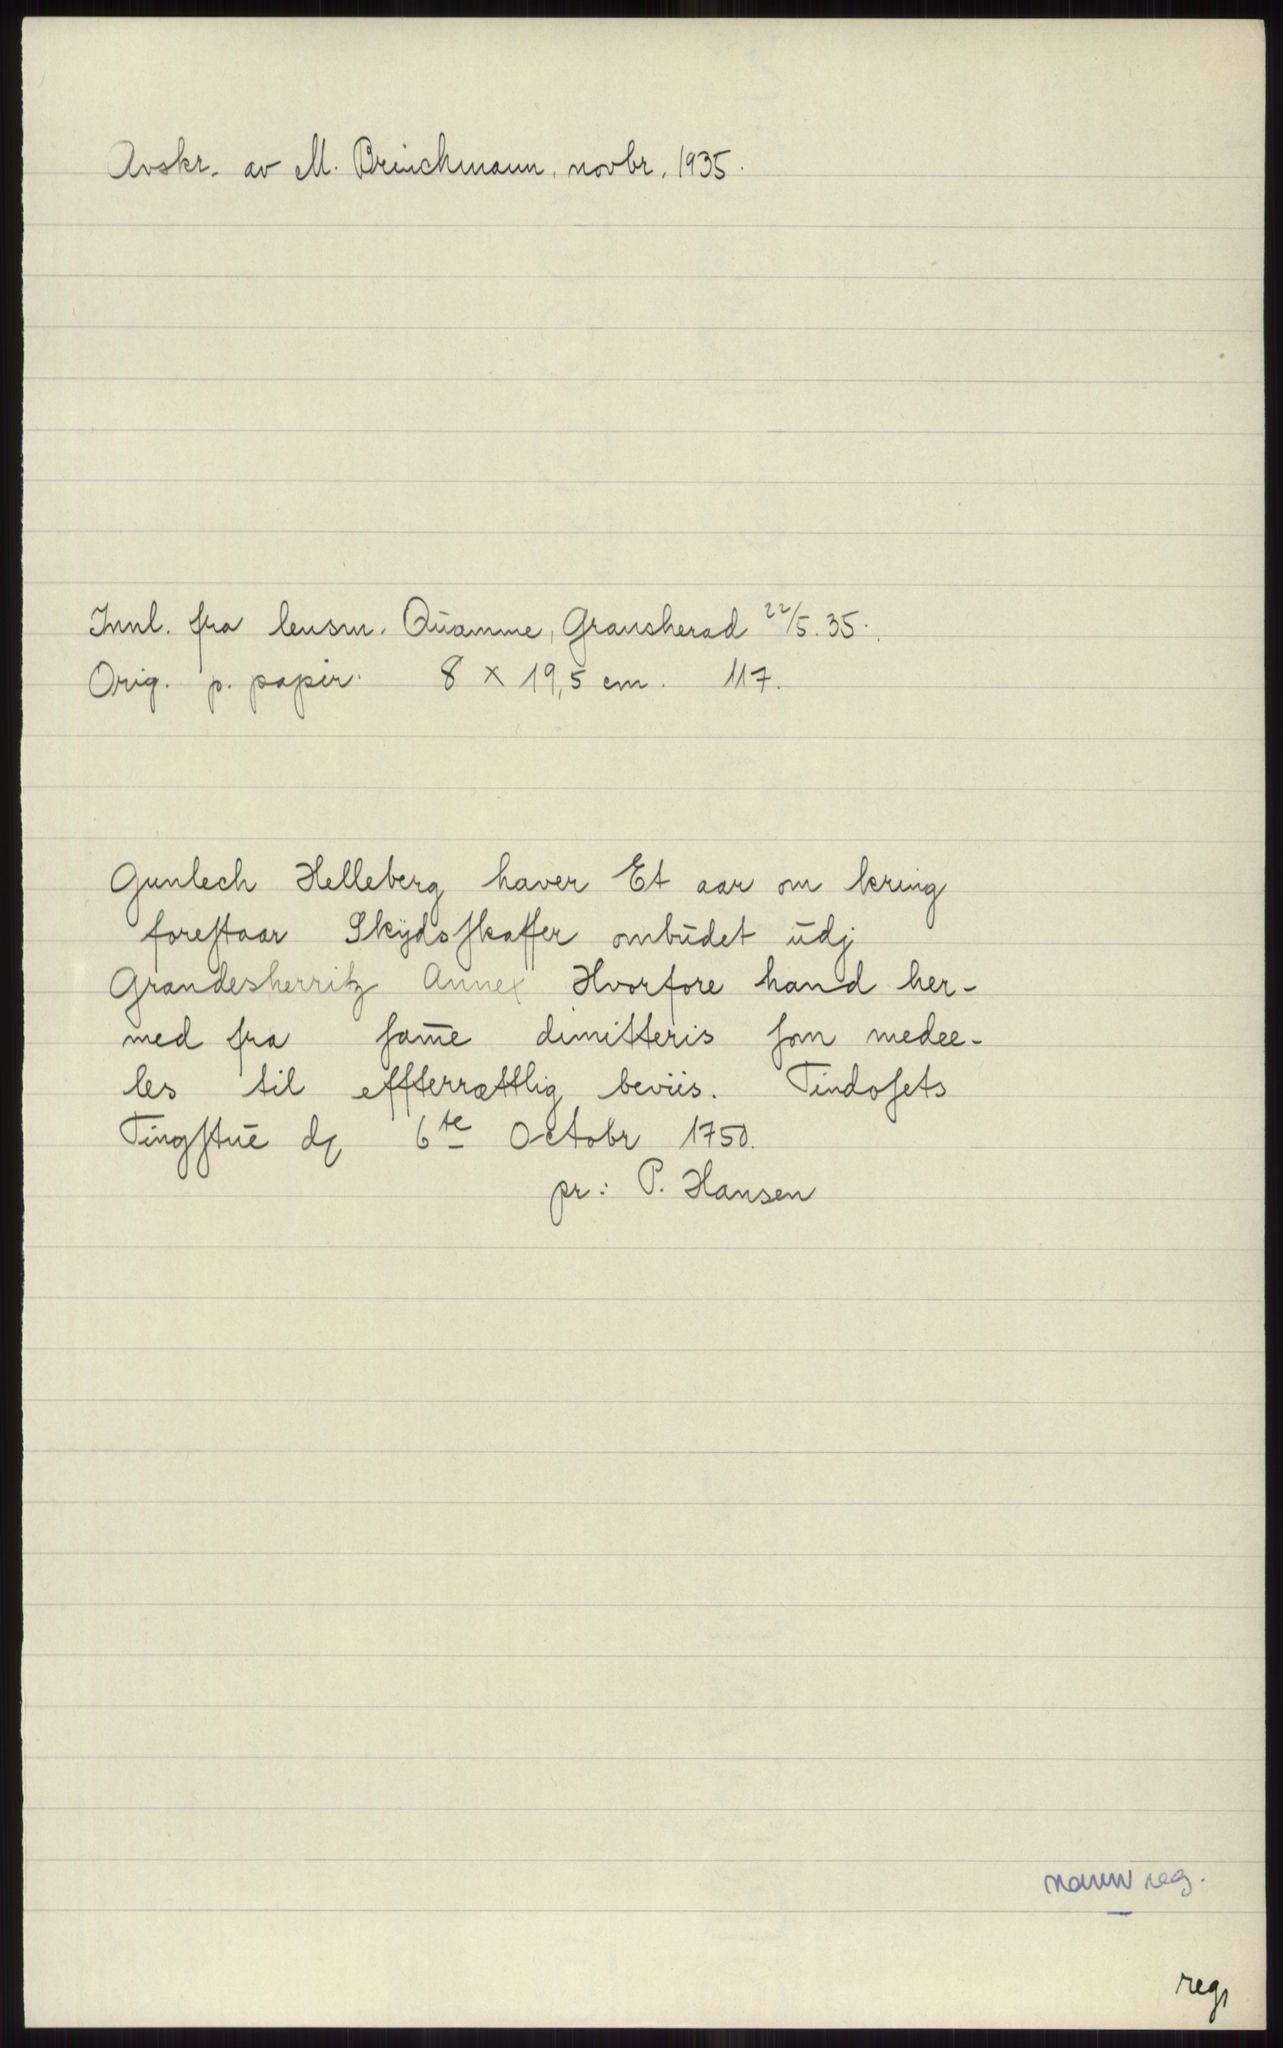 Avskr. av M. Brinchmann, novbr. 1935.
Innl. fra lensm. Quamme, Gransherad 22/5. 35.
Orig. p. papir. 8 x 19,5 cm. 117.
Gunlech Helleberg haver Et aar om kring
foreſtaar Skÿdsſkaffer ombūdet ūdj
Grandesherritz Annex Hvorfore hand her-
med fra ſam̄e dimitteris ſom medee-
les til effterrættlig beviis. Tindoſets
Tingſtūe dq 6te Octobr 1750.
pr: P. Hansen
navn reg.
reg.